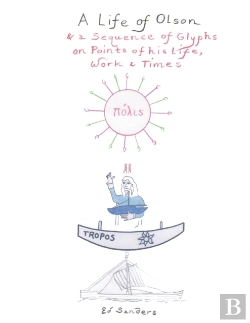 A Life of Olson
& a Sequence of Glyphs
on Points of his Life,
Work & Times
πόλις
TROPOS
Ed Sanders
B